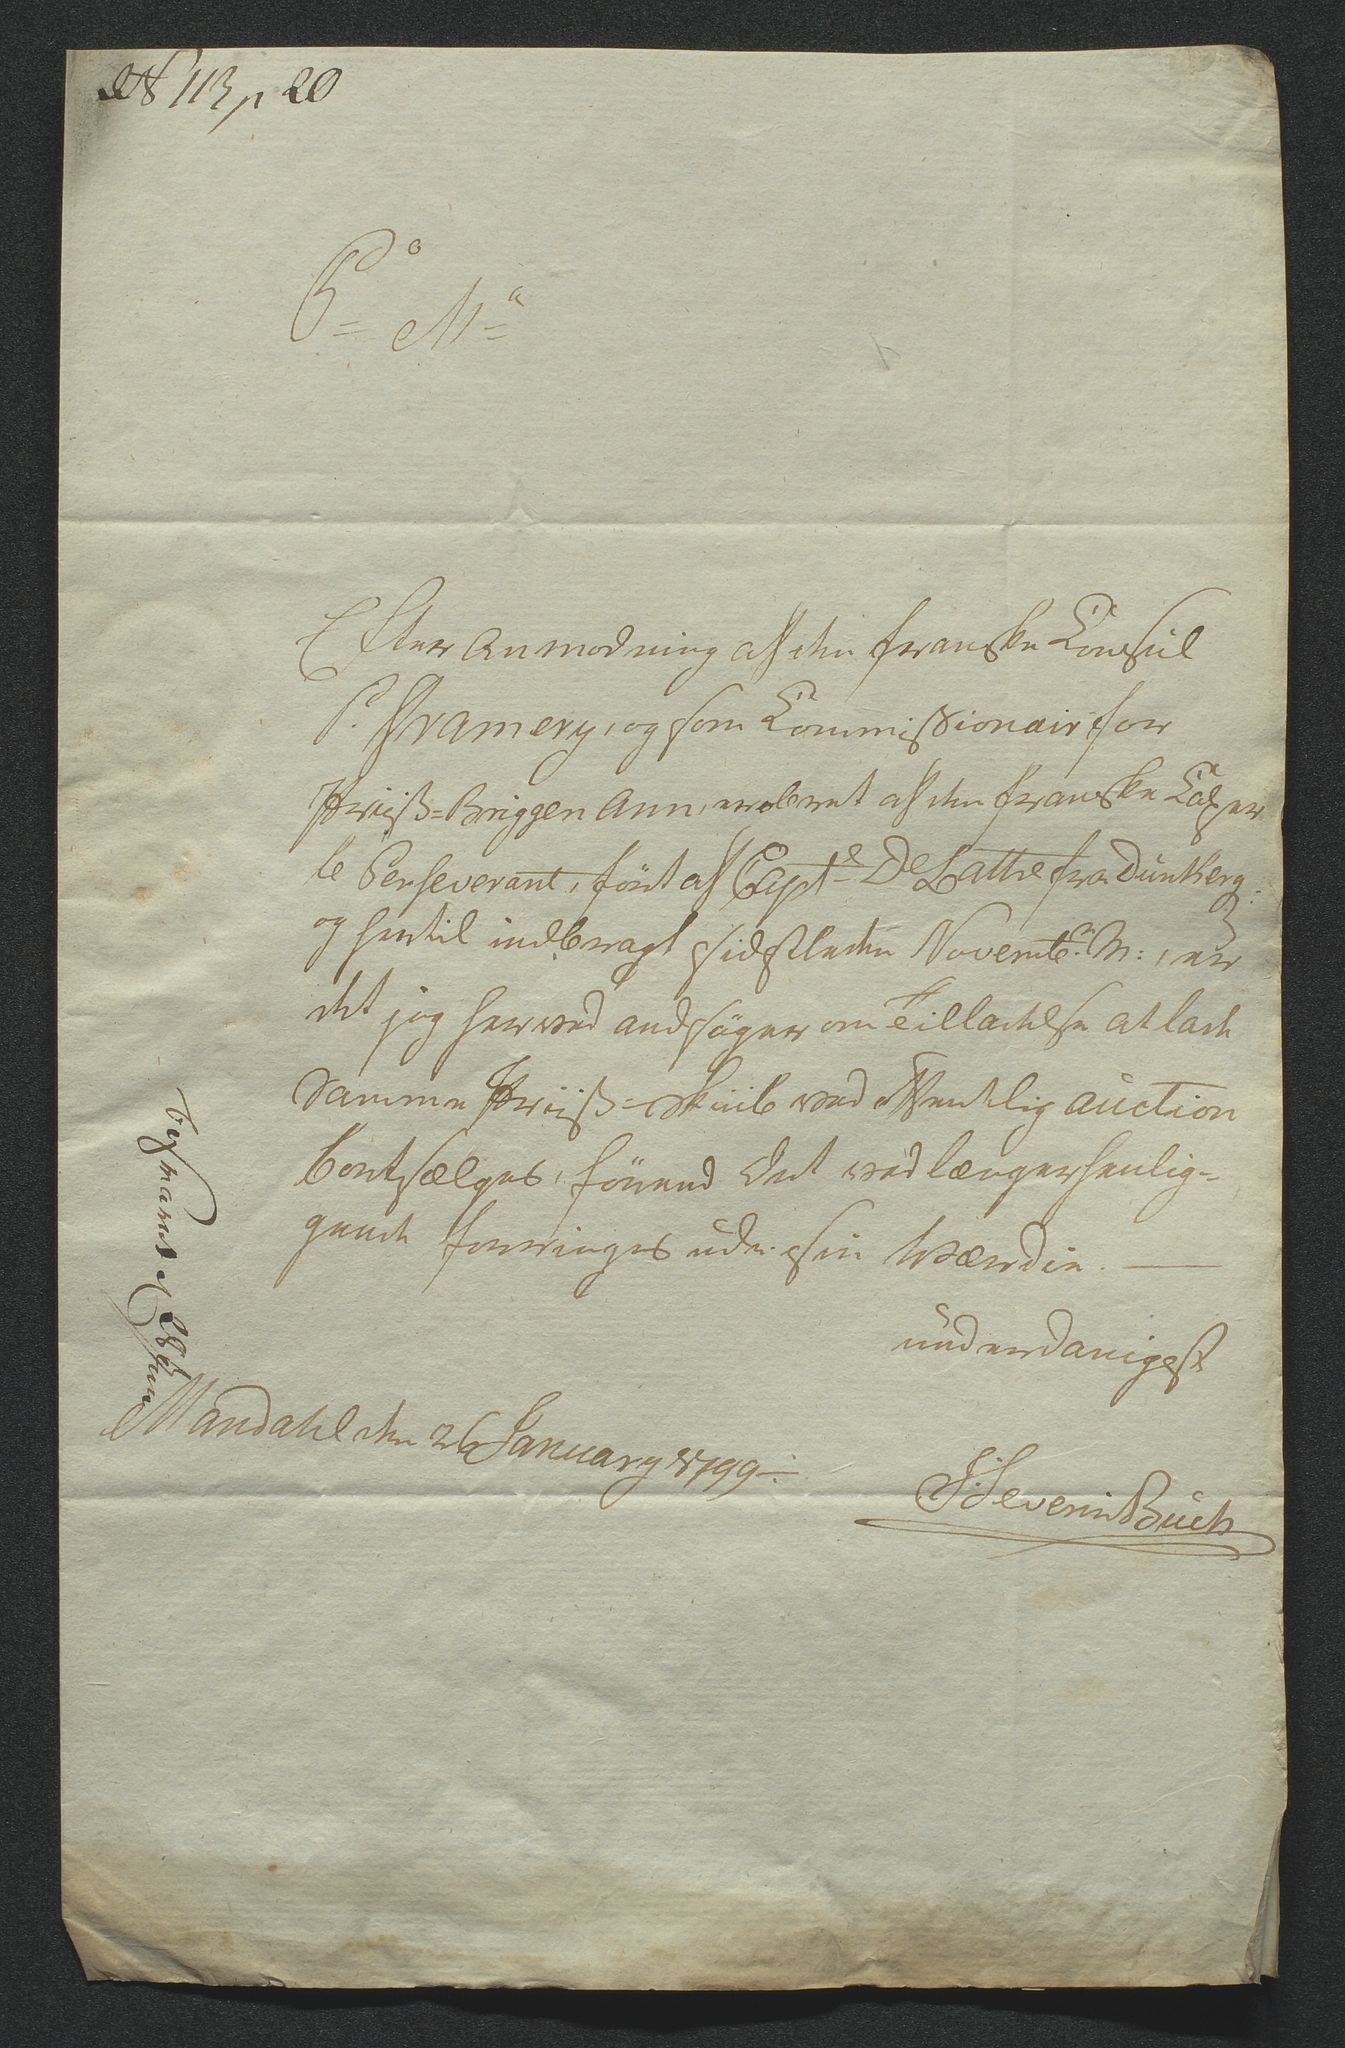 No 113 p 20
P. Mª
Efter Anmodning af den franske Consul
P. Framery, og som Commissionair for
Priiß=Briggen Ann, erobret af den franske Caper
le Perseverant, ført af Capt. De Lattre fra Dunkerq:
og hertil indbragt sidstleden Novembr: M:, er
det jeg herved andsøger om Tilladelse at lade
Samme Priiß=Skiib ved offentlig Auction
bortsælges, førend det ved længer henlig-
gende forringes udi sin Værdie. —
underdanigst
Mandahl den 26 January 1799 —
S: Severin Buch
besvaret d 28 Jan